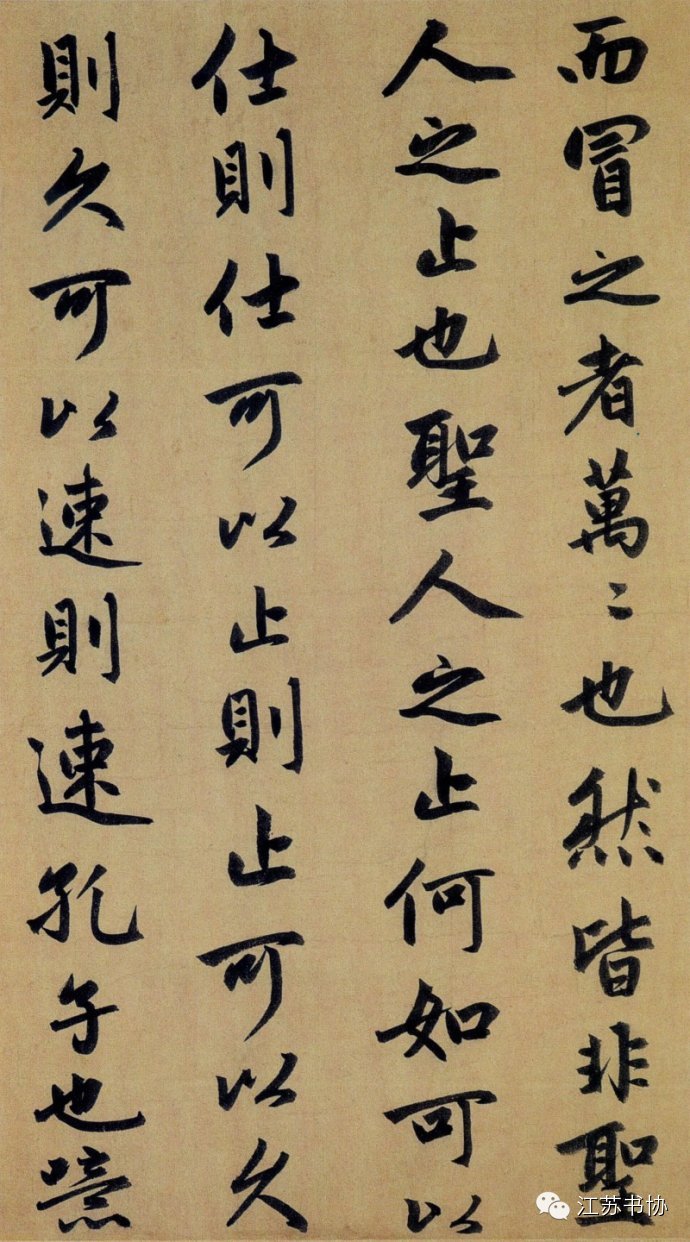 而冒之者萬〻也然皆非聖
人之止也聖人之止何如可以
仕則仕可以止則止可以久
則久可以速則速孔子也噫
江苏书协